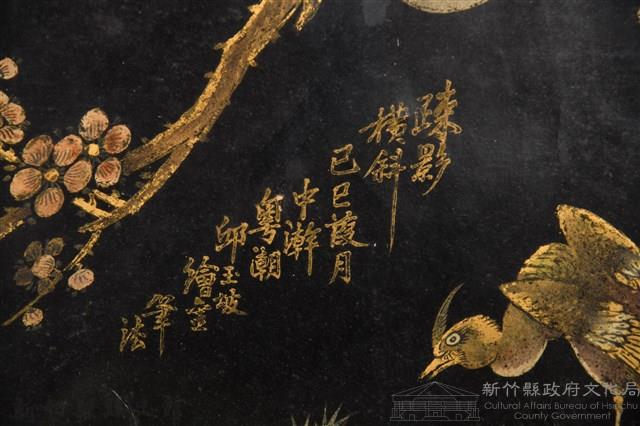 疎影
橫斜
己巳葭月
中澣
粵潮
邱玉坡
繪并
筆
法
新竹縣政府文化局
Cultural Affairs Bureau of Hsinchu
County Government